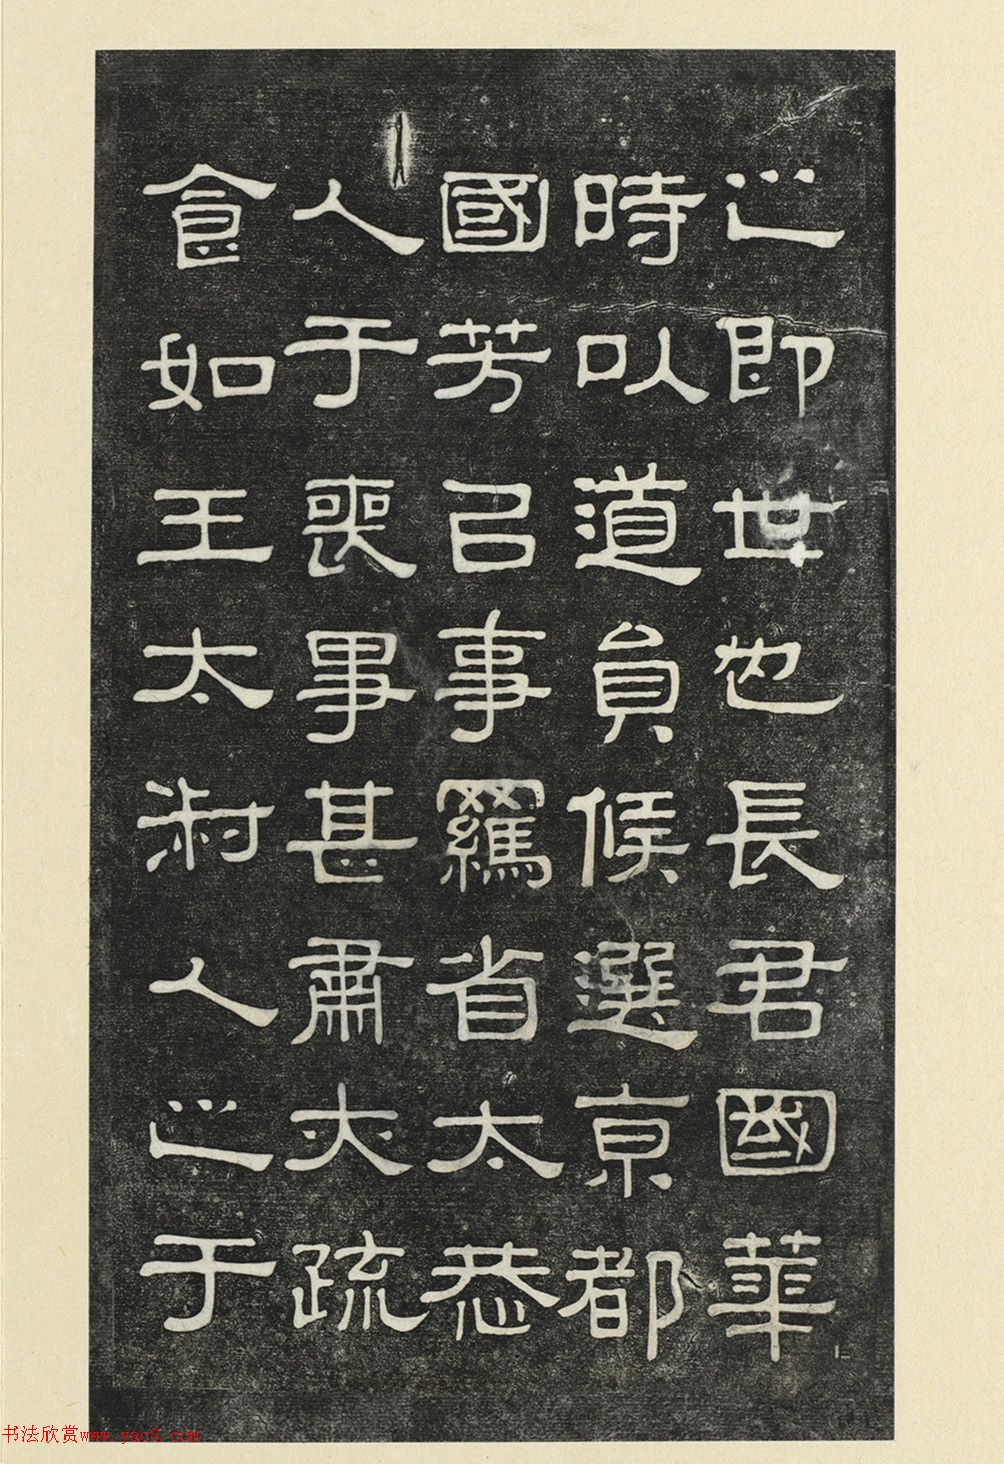 之即世也長君國華
時以道員候選京都
國芳召事羈省太恭
人于喪事甚肅夫疏
食如王太淑人之于
书法欣赏www.yac8.com